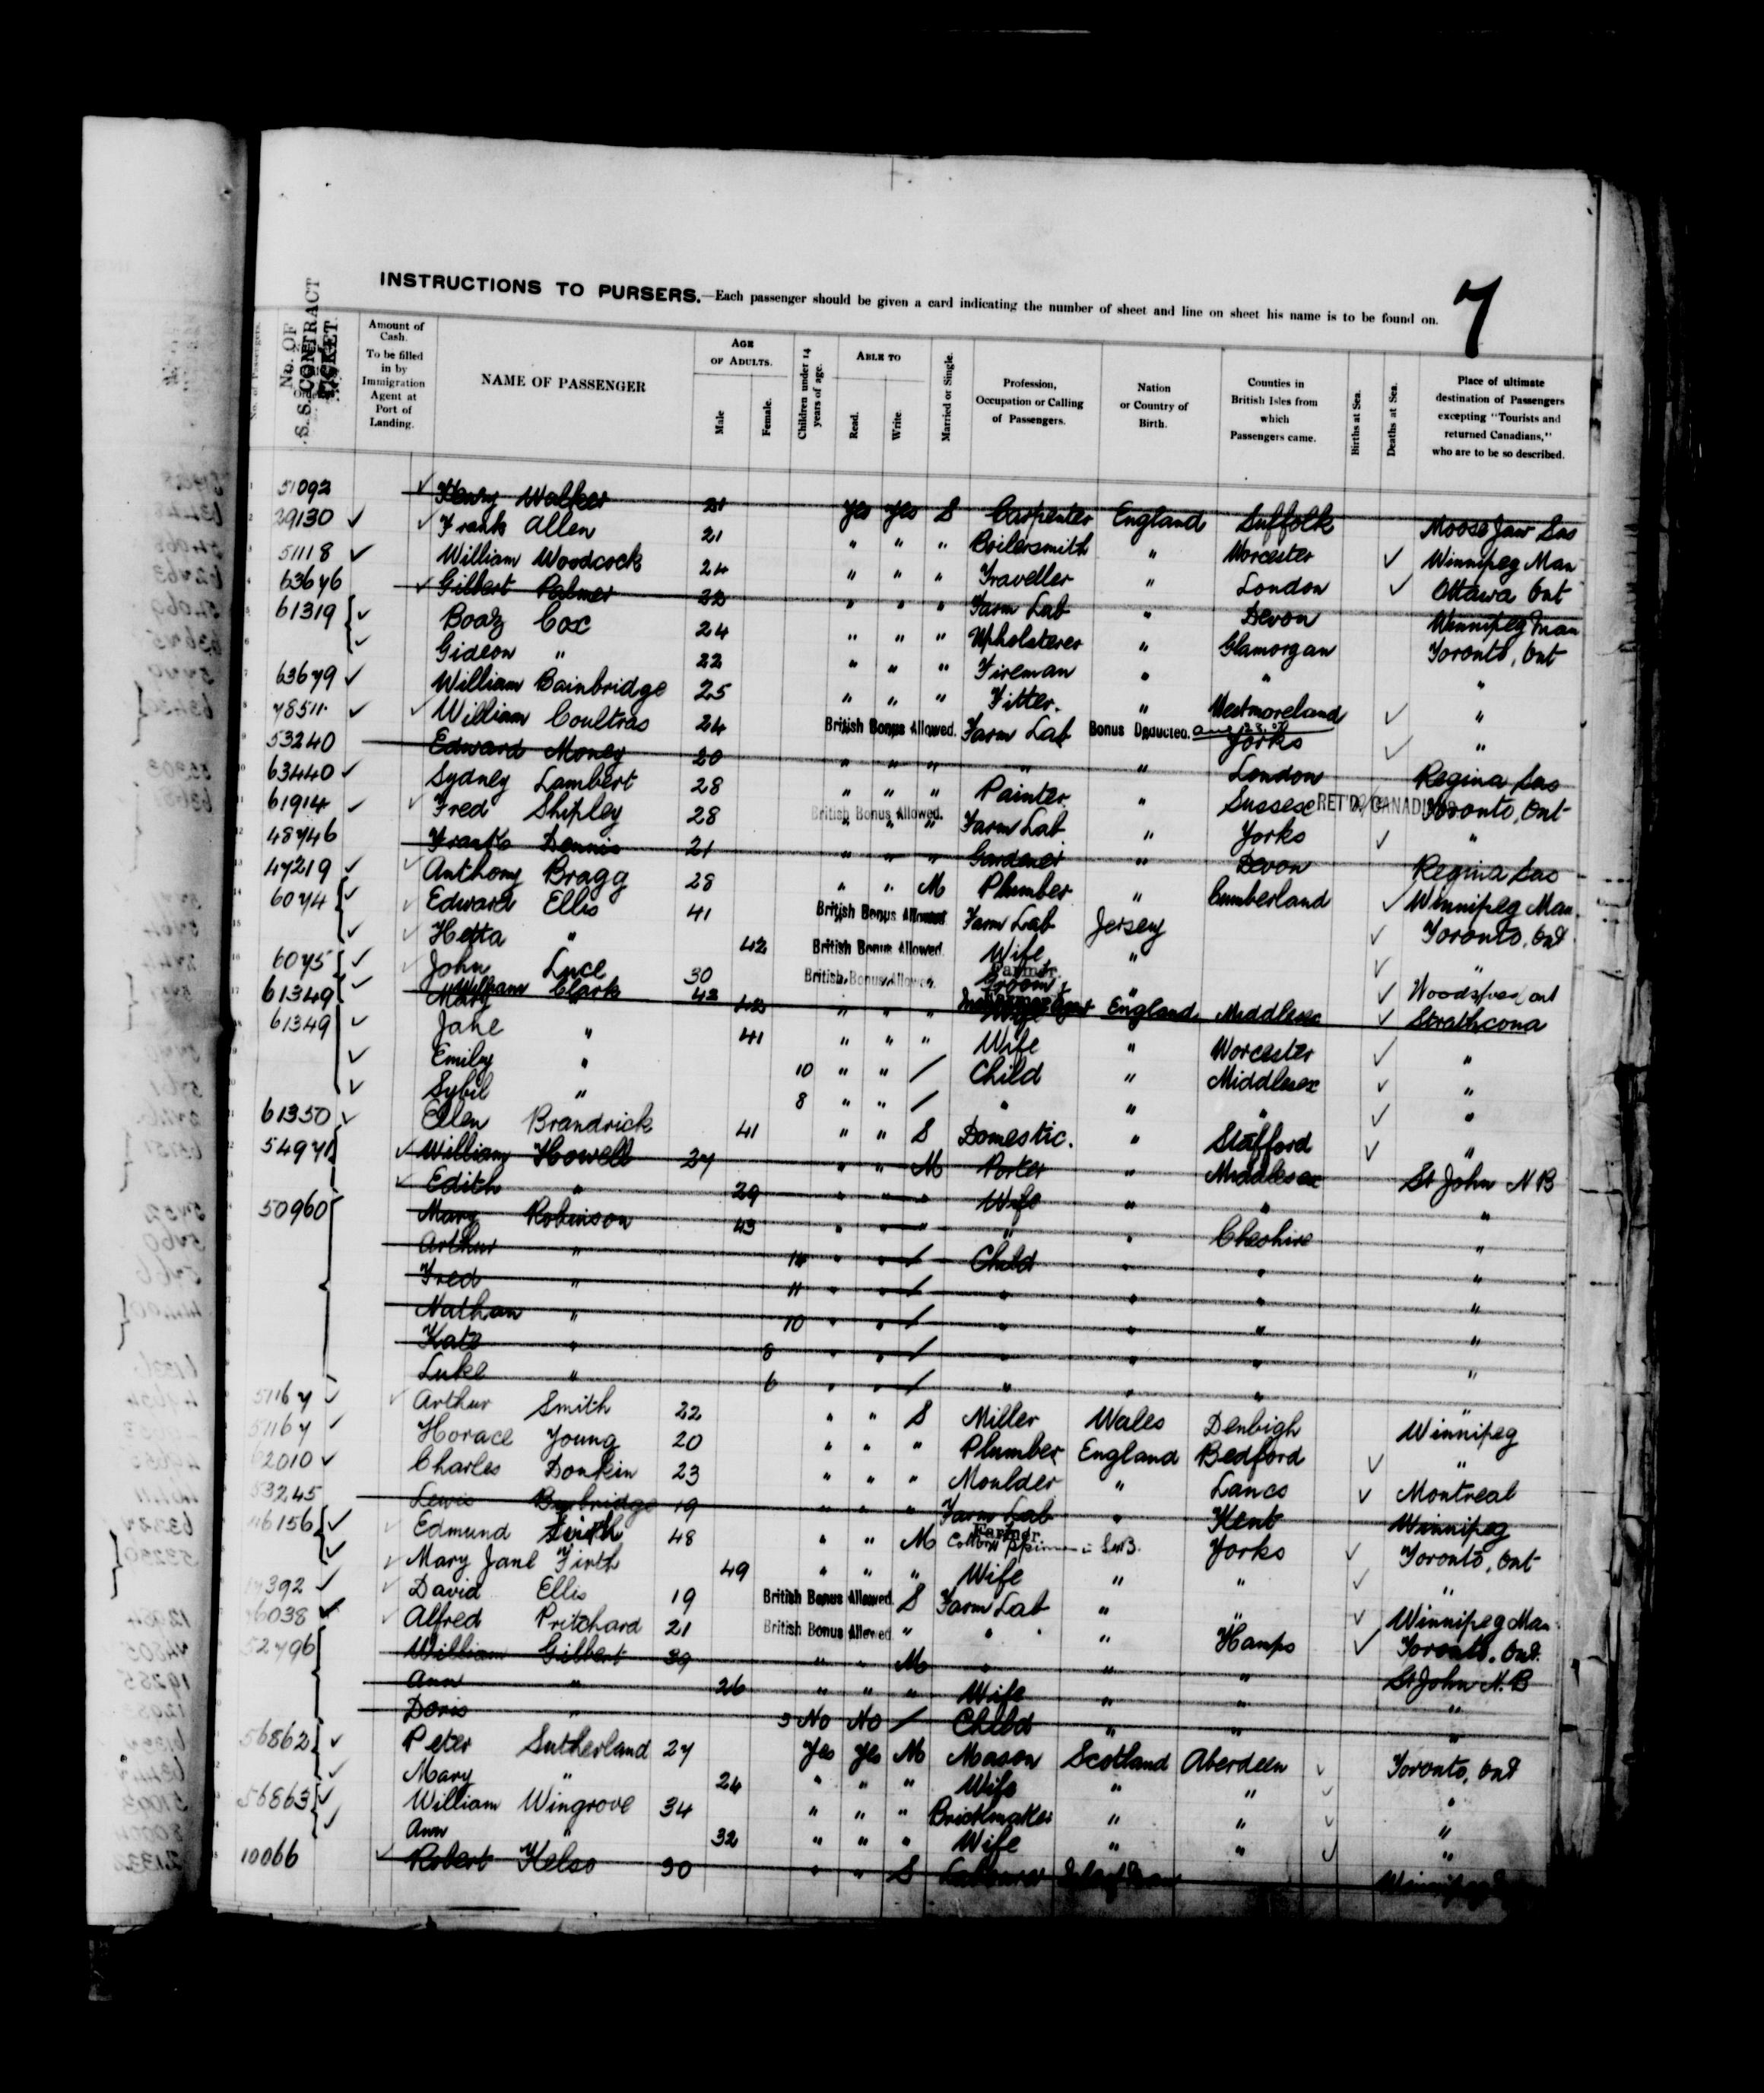 7
INSTRUCTIONS TO PURSERS.—Each passenger should be given a card indicating the number of sheet and line on sheet his name is to be found on.
No. of Passengers. No. OF S.S. CONTRACT TICKET. Amount of Cash. To be filled in by Immigration Agent at Port of Landing. NAME OF PASSENGER AGE OF ADULTS. Male Female. Children under 14 years of age. ABLE TO Read. Write. Married or Single. Profession, Occupation or Calling of Passengers. Nation or Country of Birth. Counties in British Isles from which Passengers came. Births at Sea. Deaths at Sea. Place of ultimate destination of Passengers excepting "Tourists and returned Canadians," who are to be so described.
51092 Henry Walker 21 Yes Yes S Carpenter England Suffolk Moose Jaw Sas
29130 Frank Allen 21 " " " Boilersmith " Worcester Winnipeg Man
51118 William Woodcock 24 " " " Traveller " London Ottawa Ont
63676 Gilbert Palmer 22 " " " Farm Lab " Devon Winnipeg Man
61319 Boaz Cox 24 " " " Upholsterer " Glamorgan Toronto, Ont
Gideon " 22 " " " Fireman " " "
63679 William Bainbridge 25 " " " Fitter. " Westmoreland "
78511 William Coultras 24 British Bonus Allowed. Farm Lab Bonus Deducted. Yorks "
53240 Edward Money 20 " " " " " London Regina Sas
63440 Sydney Lambert 28 " " " Painter " Sussex RET'D CANADIAN Toronto, Ont
61914 Fred Shipley 28 British Bonus Allowed. Farm Lab " Yorks "
48746 Frank Dennis 21 " " " Gardener " Devon Regina Sas
47219 Anthony Bragg 28 " " M Plumber " Cumberland Winnipeg Man.
6074 Edward Ellis 41 British Bonus Allowed Farm Lab Jersey Toronto, Ont
Hetta " 42 British Bonus Allowed. Wife " "
6075 John Luce 30 British Bonus Allowed. Farmer Groom " Woodstock Ont
61349 Mary William Clark 42 42 " " " Wife England Middlesex Strathcona
61349 Jane " 41 " " " Wife " Worcester "
Emily " 10 " " / Child " Middlesex "
Sybil " 8 " " / " " " "
61350 Ellen Brandrick 41 " " S Domestic. " Stafford "
54971 William Howell 27 " " M Porter " Middlesex St John N B
Edith " 29 " " " Wife " " "
50960 Mary Robinson 43 " " " " " Cheshire "
Arthur " 14 " " / Child " " "
Fred " 11 " " / " " " "
Nathan " 10 " " / " " " "
Kate " 8 " " / " " " "
Luke " 6 " " / " " " "
51167 Arthur Smith 22 " " S Miller Wales Denbigh Winnipeg
51167 Horace Young 20 " " " Plumber England Bedford "
62010 Charles Donkin 23 " " " Moulder " Lancs Montreal
53245 Lewis Burbridge 19 " " " Farm Lab " Kent Winnipeg
46156 Edmund Firth 48 " " M Farmer Yorks Toronto, Ont
Mary Jane Firth 49 " " " Wife " " "
392 David Ellis 19 British Bonus Allowed. S Farm Lab " " Winnipeg Man
6038 Alfred Pritchard 21 British Bonus Allowed " " " Hamps Toronto, Ont.
52796 William Gilbert 39 " " M " " " St John N.B
Ann " 26 " " " Wife " " "
Doris " 3 No No / Child " " "
56862 Peter Sutherland 27 Yes Yes M Mason Scotland Aberdeen Toronto, Ont
Mary " 24 " " " Wife " " "
56863 William Wingrove 34 " " " Brickmaker " " "
Ann " 32 " " " Wife " " "
10066 Robert Kelso 30 " " S Labourer Winnipeg